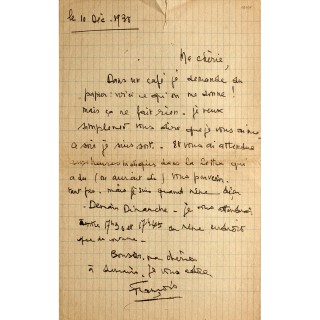 le 10 Déc. 1938
Ma chérie,
Dans un café je demande du
papier : voici ce qu'on me donne !
mais ça ne fait rien. je veux
simplement vous dire que je vous aime
ce soir je suis sorti. Et vous di attendre
dans la lettre qui
a dû (ou aurait dû) vous parvenir.
tant pis. mais je suis quand même déçu
Demain Dimanche - je vous attendrai
entre 17h30 et 17h45 au même endroit
que de coutume.
Bonsoir, ma chérie
à demain. je vous adore
François